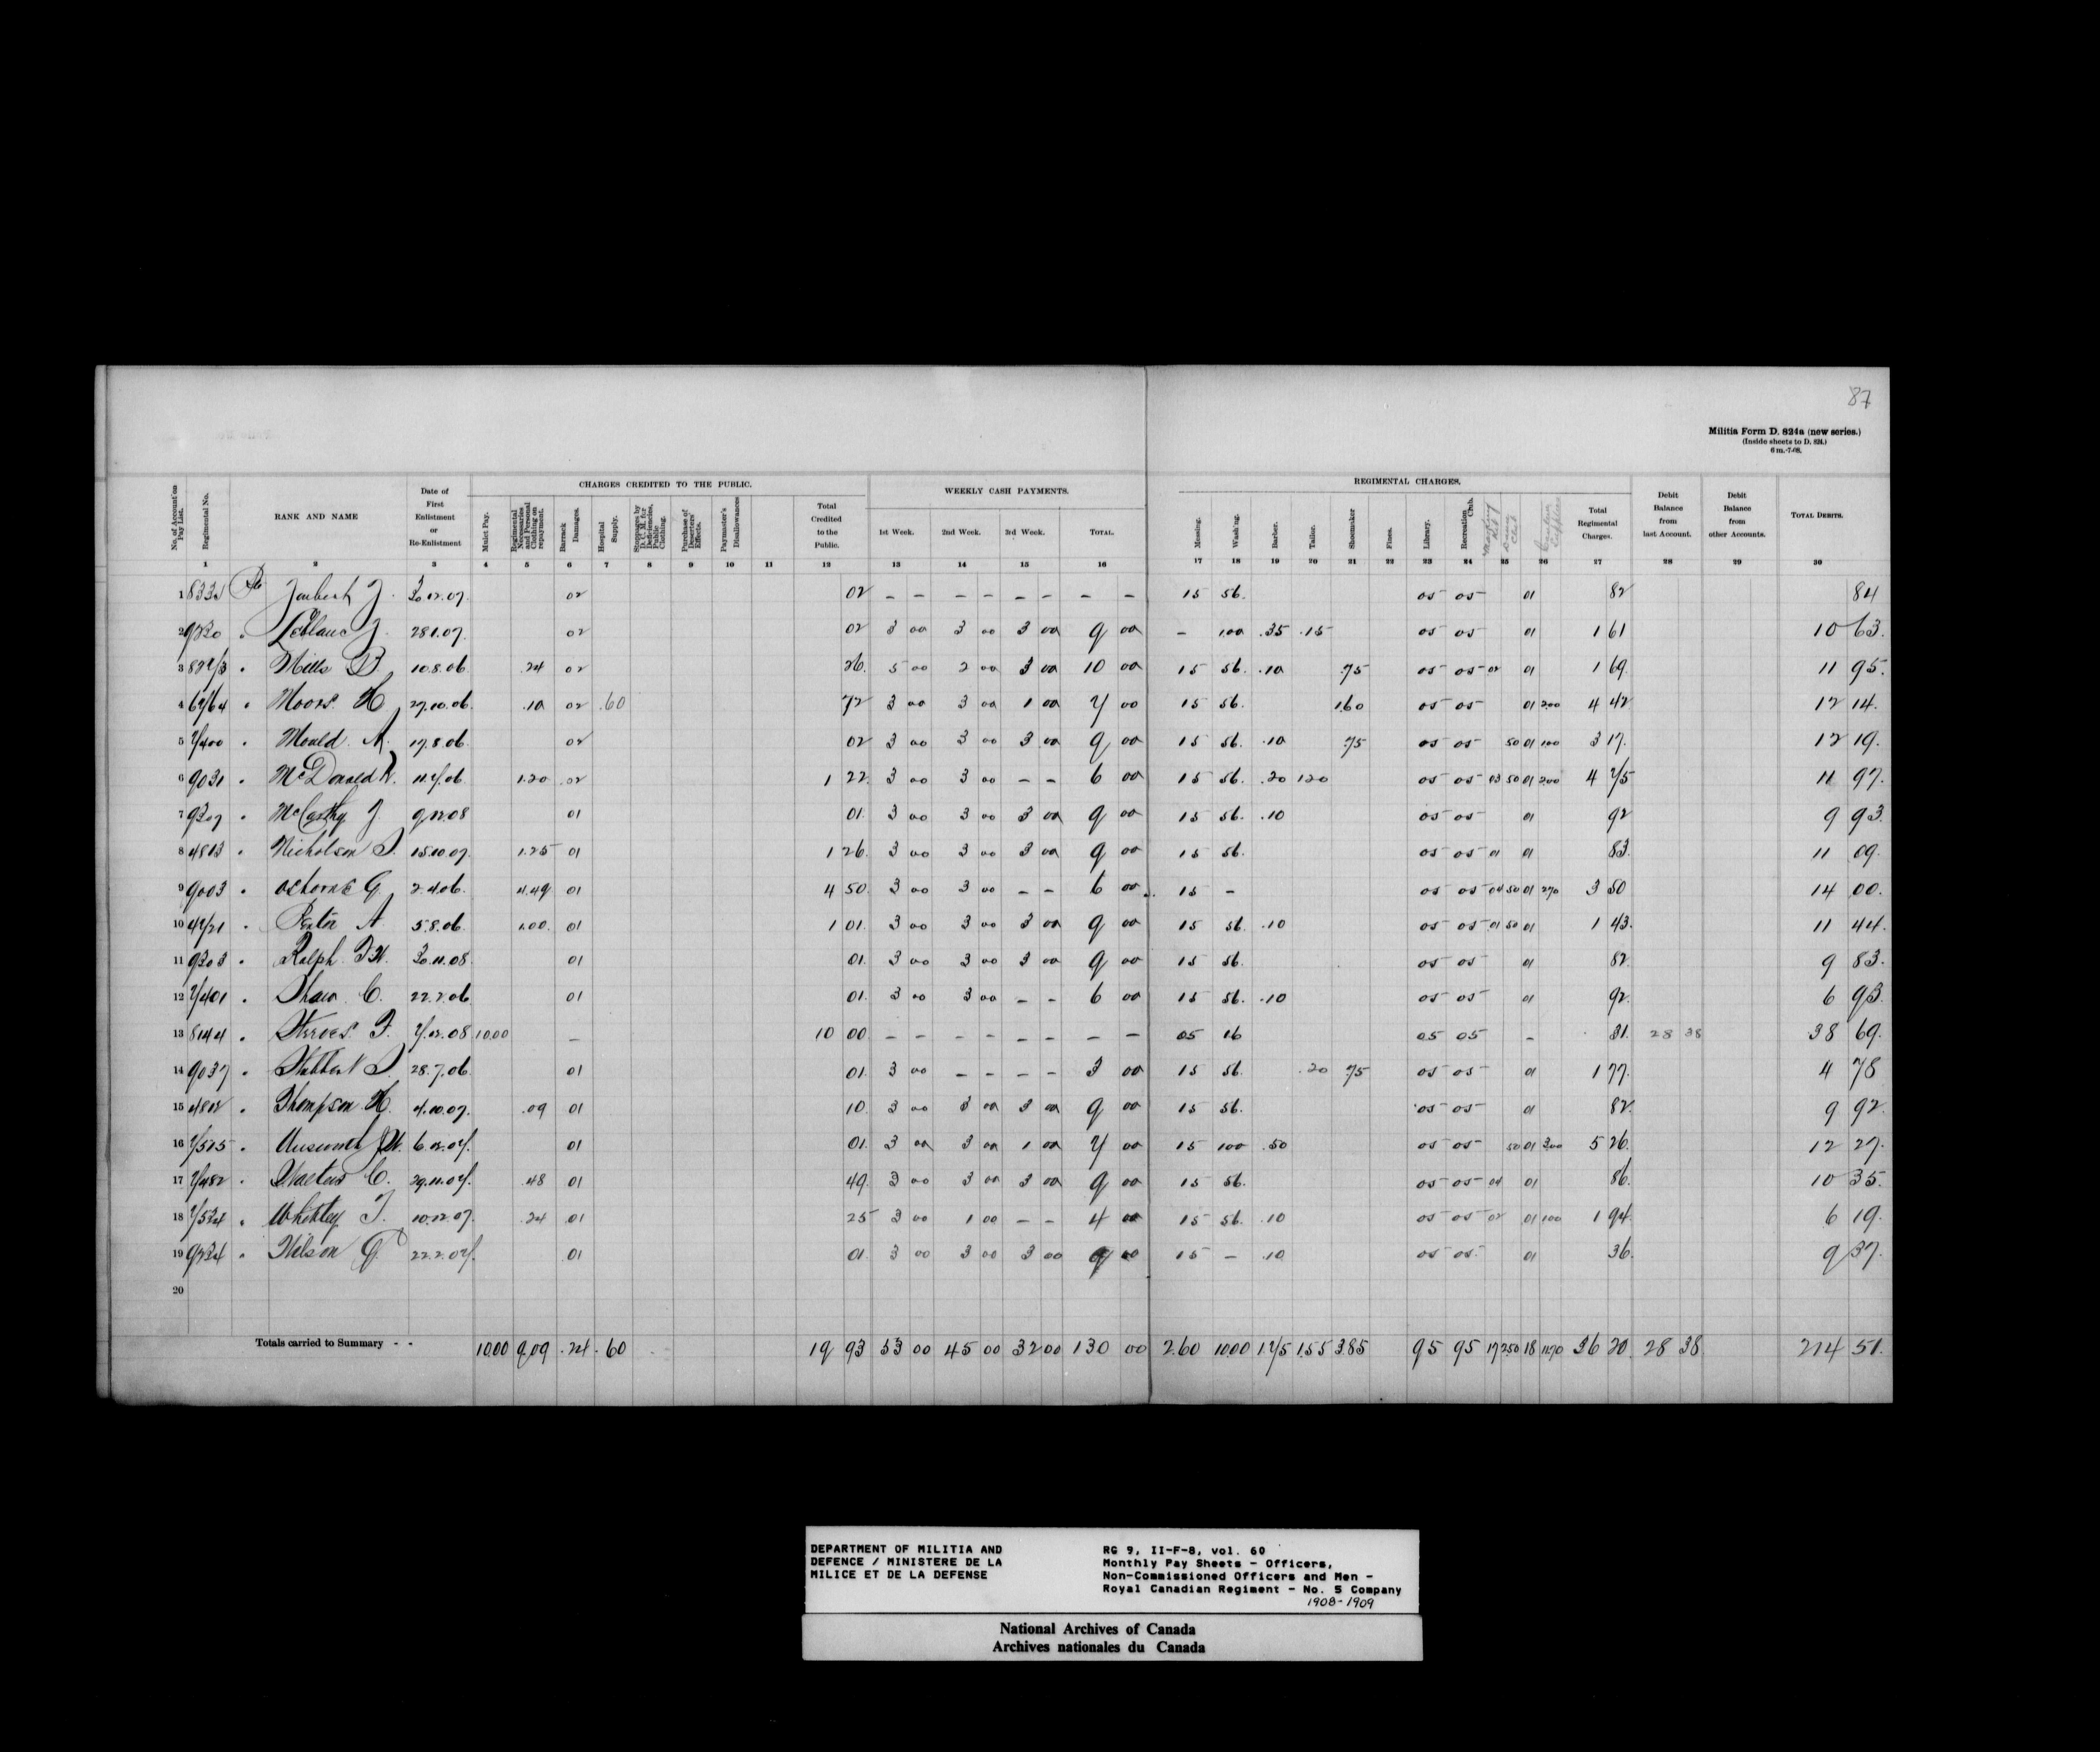 87
Militia Form D. 824a (new series.)
(Inside sheets to D. 824.)
6 m.-7-08.
CHARGES CREDITED TO THE PUBLIC. WEEKLY CASH PAYMENTS. REGIMENTAL CHARGES.
No. of Account on Pay List. Regimental No. RANK AND NAME Date of First Enlistment or Re-Enlistment Mulct Pay. Regimental Necessaries and Personal Clothing on repayment. Barrack Damages. Hospital Supply. Stoppages by D. C. M. for Deficiencies, Public Clothing. Purchase of Deserters' Effects. Paymaster's Disallowances Total Credited to the Public. 1st Week. 2nd Week. 3rd Week. TOTAL. Messing. Wash'ng. Barber. Tailor. Shoemaker Fines. Library. Recreation Club. Total Regimental Charges. Debit Balance from last Account. Debit Balance from other Accounts. TOTAL DEBITS.
1 2 3 4 5 6 7 8 9 10 11 12 13 14 15 16 17 18 19 20 21 22 23 24 25 26 27 28 29 30
1 Pte Joubert J. 30.12.07. 02 02 – – – – – – – – 15 56. 05 05 01 82 84
2 " Leblanc J. 28.1.07. 02 02 3 00 3 00 3 00 9 00 – 1.00 .35 .15 05 05 01 1 61 10 63.
3 8273 " Mills B 10.8.06 .24 02 26. 5 00 2 00 3 00 10 00 15 56. .10 .75 05 05 02 01 1 69. 11 95.
4 6764 " Moors. H 27.10.06. .10 02 .60 72 3 00 3 00 1 00 7 00 15 56. 1.60 05 05 01 2.00 4 42 12 14.
5 7400 " Mould A. 17.8.06. 02 02 3 00 3 00 3 00 9 00 15 56. .10 .75 05 05 50 01 1.00 3 17. 12 19.
6 9031 " McDonald W. 11.7.06. 1.20 .02 1 22. 3 00 3 00 – – 6 00 15 56. .20 1.20 05 05 03 50 01 2.00 4 75 11 97.
7 9307 " McCarthy J. 9.12.08 01 01. 3 00 3 00 3 00 9 00 15 56. .10 05 05 01 92 9 93.
8 4813 " Nicholson S. 15.10.07. 1.25 01 1 26. 3 00 3 00 3 00 9 00 15 56. 05 05 01 01 83. 11 09.
9 9003 " Osborne G. 2.4.06. 4.49. 01 4 50. 3 00 3 00 – – 6 00 15 – 05 05 04 50 01 2.70 3 50 14 00.
10 4721 " A 5.8.06. 1.00. 01 1 01. 3 00 3 00 3 00 9 00 15 56. .10 05 05 01 50 01 1 43. 11 44.
11 9303 " Ralph F.W. 30.11.08. 01 01. 3 00 3 00 3 00 9 00 15 56. 05 05 01 82. 9 83.
12 7401 " Shaw C. 22.2.06. 01 01. 3 00 3 00 – – 6 00 15 56. .10 05 05 01 92. 6 93.
13 8144 " F. 7.12.08 10.00 – 10 00. – – – – – – – – 05 16 05 05 – 31. 28 38 38 69.
14 9037 " S. 28.7.06. 01 01. 3 00 – – – – 3 00 15 56. .20 .75 05 05 01 1 77. 4 78
15 4802 " Thompson H. 4.10.07. .09 01 10. 3 00 3 00 3 00 9 00 15 56. 05 05 01 82. 9 92.
16 7515 " 6.12.07. 01 01. 3 00 3 00 1 00 7 00 15 1.00 .50 05 05 50 01 3.00 5 26. 12 27.
17 7482 " Walters C. 29.11.07. .48 01 49. 3 00 3 00 3 00 9 00 15 56. 05 05 04 01 86. 10 35.
18 7534 " T. 10.12.07. .24 .01 25 3 00 1 00 – – 4 00 15 56. .10 05 05 02 01 1.00 1 94. 6 19.
19 9234 " Wilson G. 22.2.07. 01 01. 3 00 3 00 3 00 9 00 15 – .10 05 05. 01 36. 9 37.
20
Totals carried to Summary - - 10.00 9.09 .24 .60 19 93 53 00 45 00 32 00 130 00 2.60 10.00 1.75 1.55 3.85 95 95 17 2.50 18 11.70 36 20. 28 38. 214 51.
DEPARTMENT OF MILITIA AND
DEFENCE / MINISTERE DE LA
MILICE ET DE LA DEFENSE
RG 9, II-F-8, vol. 60
Monthly Pay Sheets - Officers,
Non-Commissioned Officers and Men -
Royal Canadian Regiment - No. 5 Company
1908-1909
National Archives of Canada
Archives nationales du Canada